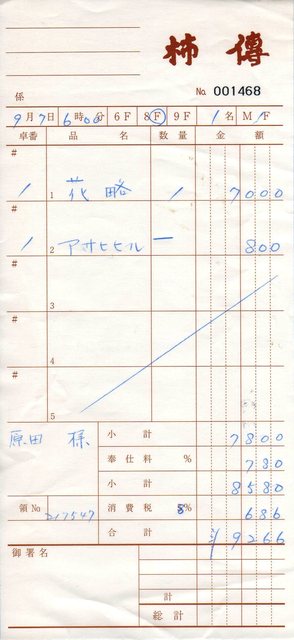 柿傳
係
No. 001468
9月7日 6時00分 6F 8F 9F 1名 M/F
卓番 品名 数量 金額
#
1 1 花略 1 7000
#
1 2 アサヒビル 一 800
#
3
#
4
#
5
原田 様 小計 7800
奉仕料 % 780
小計 8580
領No 217547 消費税 8% 686
合計 ¥9266
御署名
計
総計